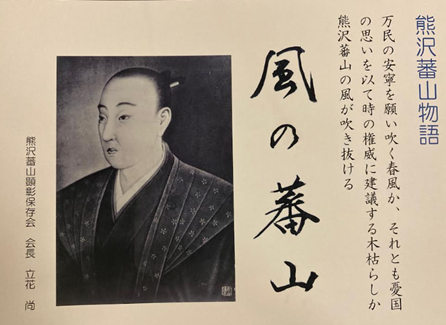 熊沢蕃山物語
万民の安寧を願い吹く春風か、それとも憂国
の思いを以て時の権威に建議する木枯らしか
熊沢蕃山の風が吹き抜ける
風の蕃山
熊沢蕃山顕彰保存会　会長　立花　尚